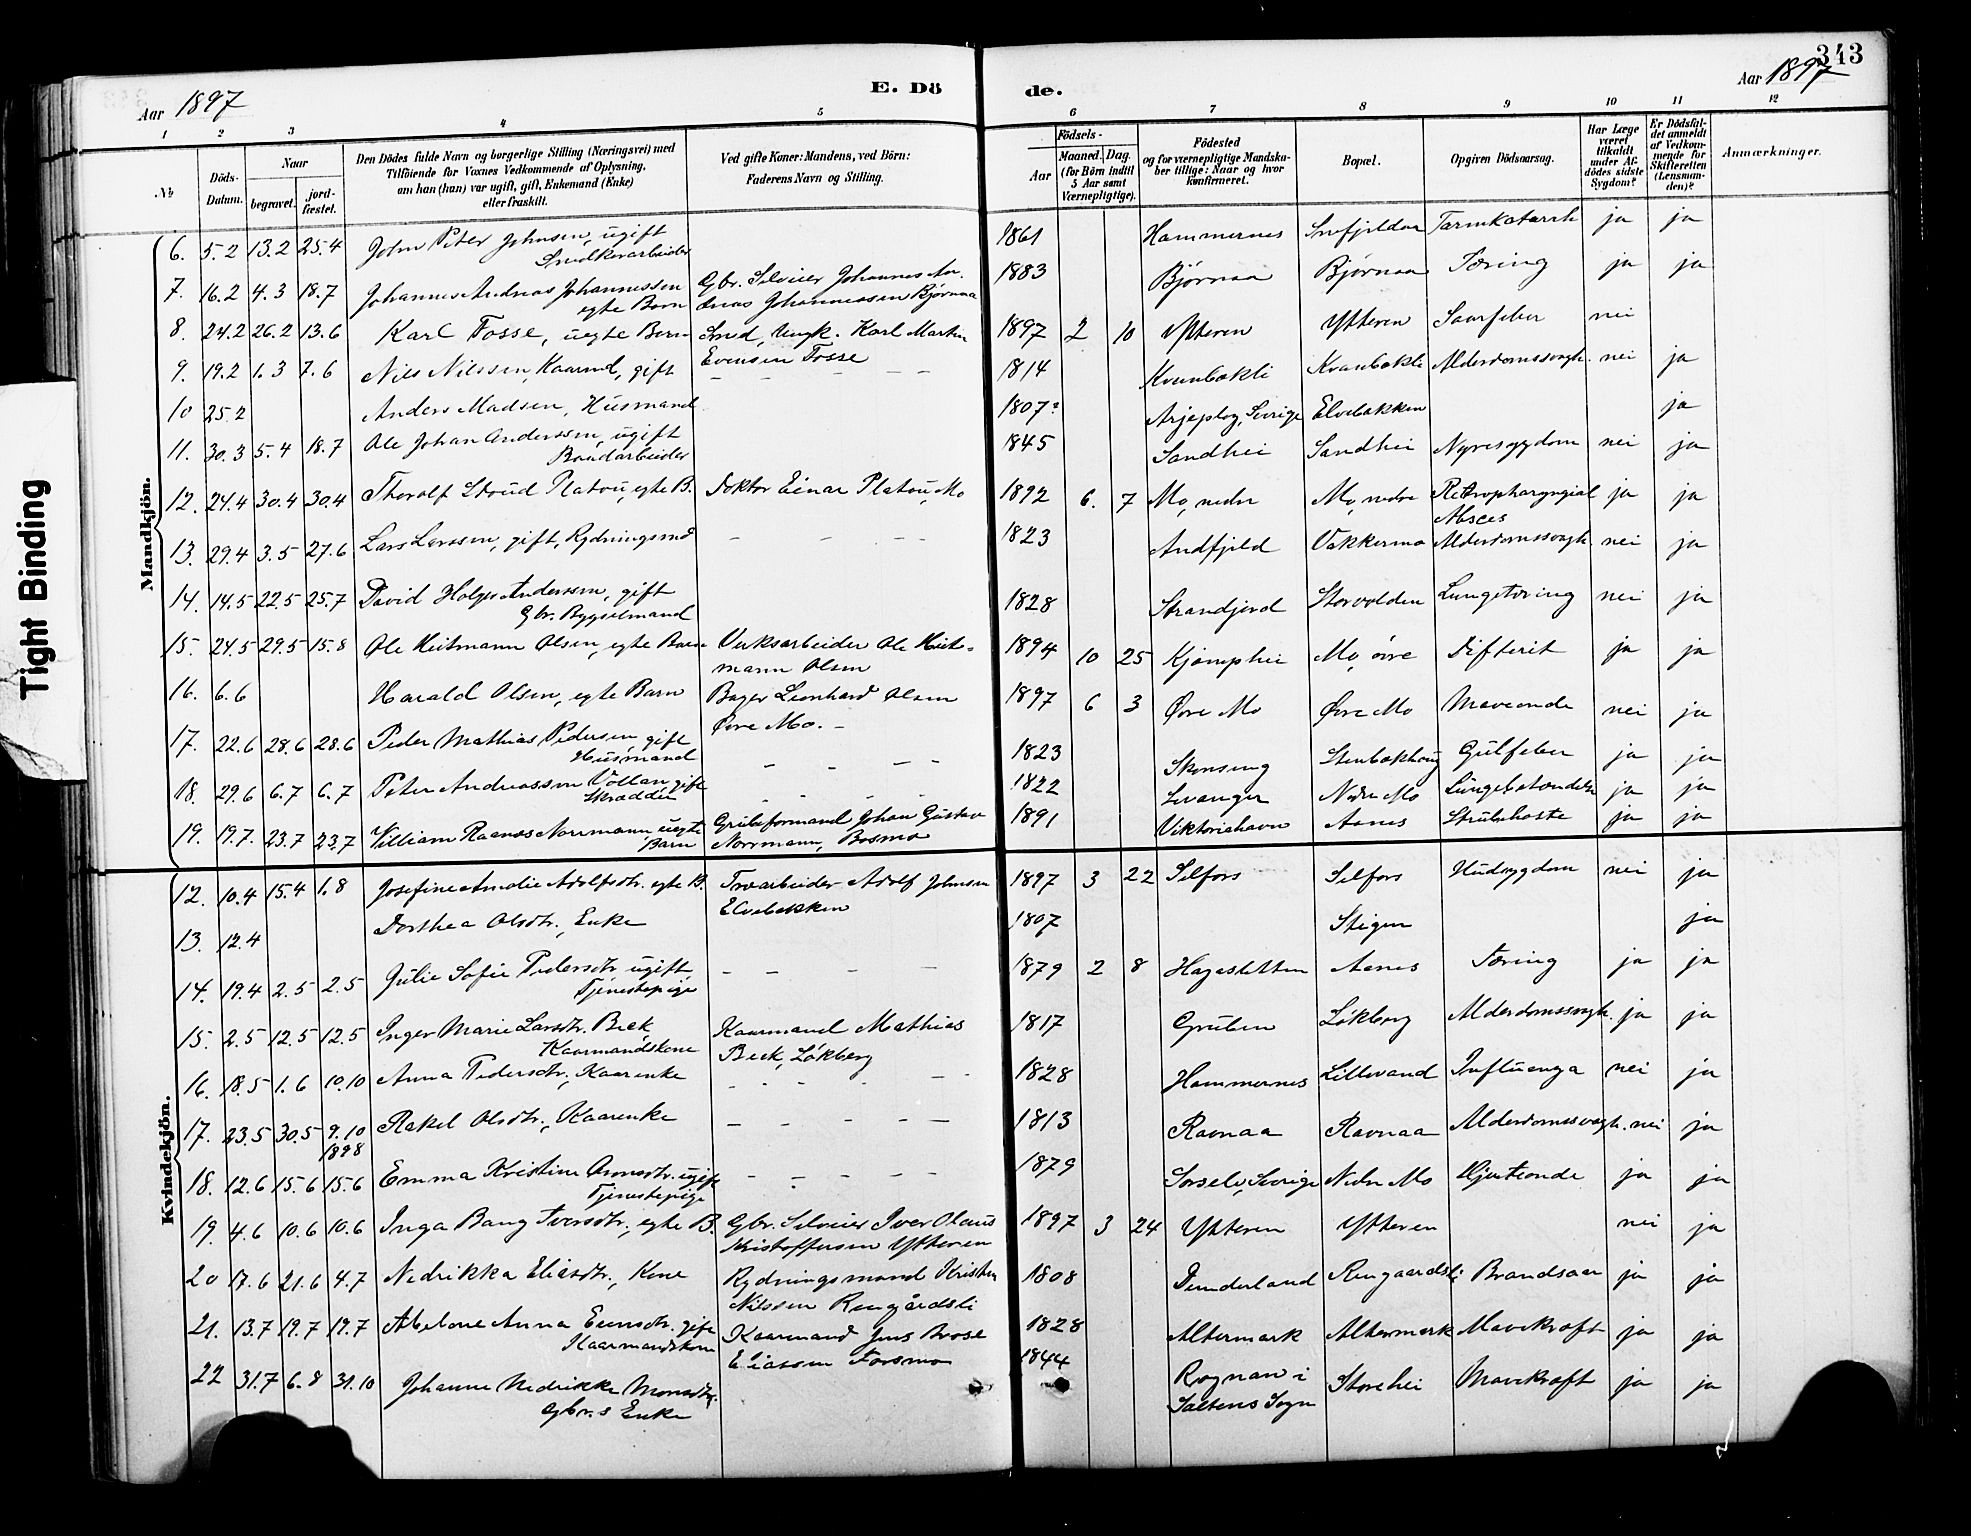 343
Aar 1897
E. Dö
de.
Aar 1897
1 2 3 4 5 6 7 8 9 10 11 12
№
Döds-Datum.
Naar
begravet.
jord-fæstet.
Den Dödes fulde Navn og borgerlige Stilling (Næringsvei) med
Tilföiende for Voxnes Vedkommende af Oplysning,
om han (hun) var ugift, gift, Enkemand (Enke)
eller fraskilt.
Ved gifte Koner: Mandens, ved Börn:
Faderens Navn og Stilling.
Födsels-
Aar
Maaned. Dag.
(for Börn indtil
5 Aar samt
Værnepligtige).
Födested
og for værnepligtige Mandska-
ber tillige: Naar og hvor
konfirmeret.
Bopæl.
Opgiven Dödsaarsag.
Har Læge
været
tilkaldt
under Af-
dödes sidste
Sygdom?
Er Dödsfal-
det anmeldt
af Vedkom-
mende for
Skifteretten
(Lensman-
den)?
Anmærkninger.
Tight Binding
Mandkjön.
6. 5.2 13.2 25.4 John Peter Johnsen, ugift 1861 Hammernes Snefjeldaa Tarmkatarrh ja ja
Snedkerarbeider
7. 16.2 4.3 18.7 Johannes Andreas Johannessen Gbr. Selveier Johannes An- 1883 Bjørnaa Bjørnaa Tæring ja ja
egte Barn dreas Johannessen Bjørnaa
8. 24.2 26.2 13.6 Karl Fosse, uegte Barn Smed, Ungk. Karl Martin 1897 2 10 Ytteren Ytteren Saarfeber nei
Evensen Fosse
9. 19.2 1.3 7.6 Nils Nilssen, Kaarmd, gift – – – – – 1814 Kvanbækli Kvanbækli Alderdomssvagh. nei ja
10 25.2 Anders Madsen, Husmand 1807? Arjeplog, Sverige Elvebakken ja
11. 30.3 5.4 18.7 Ole Johan Anderssen, ugift 1845 Sandhei Sandhei Nyresygdom nei ja
Bondarbeider
12. 24.4 30.4 30.4 Thorolf Stoud Platou, egte B. Doktor Einar Platou, Mo 1892 6. 7 Mo, nedre Mo, nedre Retropharyngial ja ja
Absces
13. 29.4 3.5 27.6 Lars Larssen, gift, Rydningsmd – – – – 1823 Andfjeld Vakkermo Alderdomssvagh. nei ja
14. 14.5 22.5 25.7 David Holger Anderssen, gift 1828 Strandjord Storvolden Lungetæring nei ja
Gbr. Bygselmand
15. 24.5 29.5 15.8 Ole Heitmann Olsen, egte Barn Verksarbeider Ole Heit- 1894 10 25 Kjømphei Mo, øvre Difterit ja ja
mann Olsen
16. 6.6 Harald Olsen, egte Barn Bager Leonhard Olsen 1897 6 3 Øvre Mo Øvre Mo Maveonde nei ja
Øvre Mo. –
17. 22.6 28.6 28.6 Peder Mathias Pedersen, gift 1823 Skonseng Stenbækhaug Gulfeber ja ja
Husmand – – – –
18. 29.6 6.7 6.7 Peter Andreassen Vollan, gift 1822 Levanger Nedre Mo Lungebetændelse ja ja
Skrædder – – – –
19. 19.7. 23.7 23.7 William Raanæs Norrmann, uegte Grubeformand Johan Gustav 1891 Viktoriahavn Aanes Strubehoste ja ja
Barn Norrmann, Bosmo
Kvindekjön.
12. 10.4 15.4 1.8 Josefine Amalie Adolfsdtr. egte B. Trærbeider Adolf Johnsen 1897 3 22 Selfors Selfors Hudsygdom nei ja
Elvebakken
13. 12.4 Dorthea Olsdtr., Enke 1807 Stigen ja
14. 19.4 2.5 2.5 Julie Sofie Pedersdtr. ugift, – – – – 1879 2 8 Hagasletten Aanes Tæring ja ja
Tjenestepige
15. 2.5 12.5 12.5 Inger Marie Larsdtr. Beck Kaarmand Mathias 1817 Gruben Løkberg Alderdomssvagh. ja ja
Kaarmandskone Beck, Løkberg
16. 18.5 1.6 10.10 Anna Pedersdtr., Kaarenke – – – – – 1828 Hammernes Lillevand Influenza nei ja
17. 23.5 30.5 9.10 Rakel Olsdtr., Kaarenke – – – – – 1813 Ravnaa Ravnaa Alderdomssvagh. nei ja
1898
18. 12.6 15.6 15.6 Emma Kristine Aronsdtr. ugift – – – – – 1879 Sorsele, Sverige Nedre Mo Hjerteonde ja ja
Tjenestepige
19. 4.6 10.6 10.6 Inga Bang Iversdtr., egte B. Gbr. Selveier Iver Olaus 1897 3 24 Ytteren Ytteren nei ja
Kristoffersen Ytteren
20 17.6 21.6 4.7 Nedrikka Eliasdtr., Kone Rydningsmand Kristen 1808 Dunderland Rengaardsli Brandsaar ja ja
Nilssen Rengårdsli
21. 13.7 19.7 19.7 Abelone Anna Evensdtr. gift Kaarmand Jens Brose 1828 Altermark Altermark Mavekræft ja ja
Kaarmandskone Eliassen Forsmo
22 31.7 6.8 31.10 Johanne Nedrikke Monsdtr. 1844 Rognan i Storehei Mavekræft ja ja
Gbr.s Enke Saltens Sogn